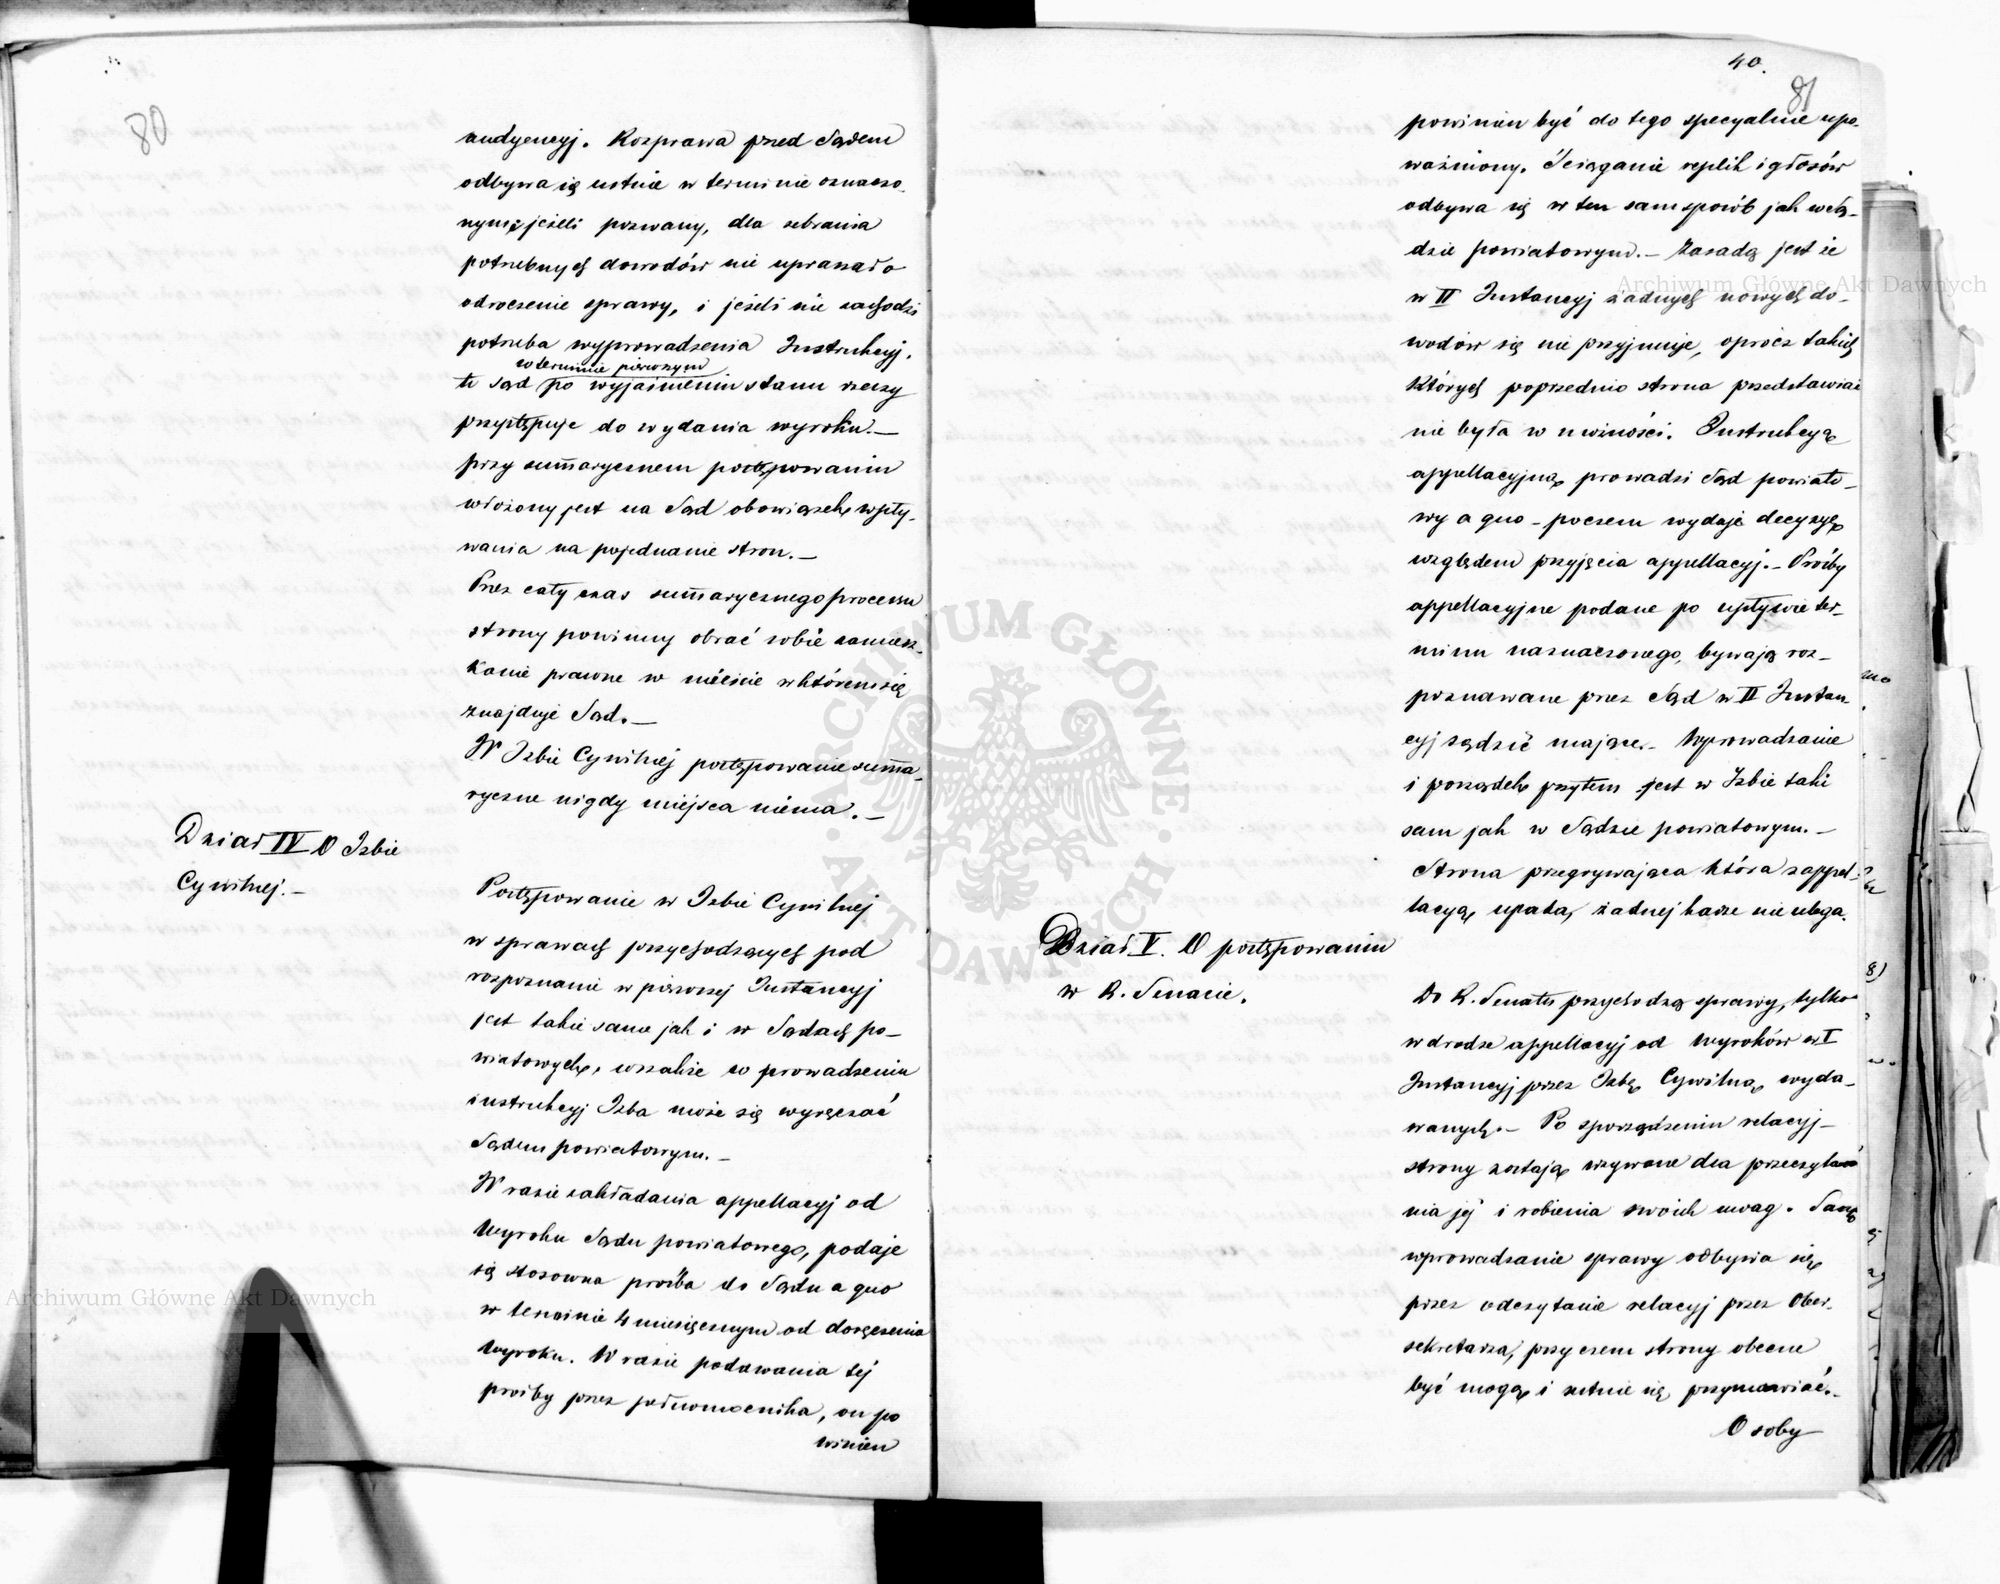 80
audyencyj. Rozprawa przed Sądem
odbywa się ustnie w terminie oznaczo-
nym; jeżeli pozwany, dla zebrania
potrzebnych dowodów nie upraszało
odroczenie sprawy, i jeżeli nie zachodzi
potrzeba wyprowadzenia Instrukcyj,
w terminie pierwszym
to sąd po wyjaśnieniu stanu rzeczy
przystępuje do wydania wyroku.—
przy summarycznem postępowaniu
włożony jest na Sąd obowiązek wpły-
wania na pojednanie stron.—
Przez cały czas summarycznego processu
strony powinny obrać sobie zamiesz-
kanie prawne w mieście w którem się
znajduje Sąd.—
W Izbie Cywilnej postępowanie summa-
ryczne nigdy miejsca niema.—
Dział IV O Izbie
Cywilnej.—
Postępowanie w Izbie Cywilnej
w sprawach przychodzących pod
rozpoznanie w pierwszej Instancyj
jest takie same jak i w Sądach po-
wiatowych, wszakże w prowadzeniu
instrukcyj Izba może się wyręczać
Sądem powiatowym.—
W razie zakładania appellacyj od
Wyroku Sądu powiatowego, podaje
się stosowna prośba do Sądu a quo
w terminie 4 miesięcznym od doręczenia
Wyroku. W razie podawania tej
prośby przez pełnomocnika, on po
winien
40.
81
powinien być do tego specyalnie upo-
ważniony. Ściąganie replik i głosów
odbywa się w ten sam sposób jak w Są-
dzie powiatowym.— Zasadą jest że
w II Instancyj żadnych nowych do-
wodów się nie przyjmuje, oprócz takich
których poprzednio strona przedstawiać
nie była w możności. Instrukcyą
appellacyjną prowadzi Sąd powiato-
wy a quo - poczem wydaje decyzyę
względem przyjęcia appellacyj.— Prośby
appellacyjne podane po upływie ter-
minu naznaczonego, bywają roz-
poznawane przez Sąd w II Instan-
cyj sądzić mające.— Wprowadzanie
i porządek przytem jest w Izbie taki
sam jak w Sądzie powiatowym.—
Strona przegrywająca która z appel-
lacyą upada, żadnej karze nie ulega.
Dział V. O postępowaniu
w R. Senacie.
Do R. Senatu przychodzą sprawy, tylko
w drodze appellacyj od Wyroków w I
Instancyj przez Izbę Cywilną wyda-
wanych.— Po sporządzeniu relacyj—
strony zostają wzywane dla przeczyta
nia jej i robienia swoich uwag. Samo
wprowadzanie sprawy odbywa się
przez odczytanie relacyj przez Ober-
sekretarza, przyczem strony obecne
być mogą i ustnie się przymawiać.—
Osoby
Archiwum Główne Akt Dawnych
Archiwum Główne Akt Dawnych
ARCHIWUM GŁÓWNE · AKT DAWNYCH ·